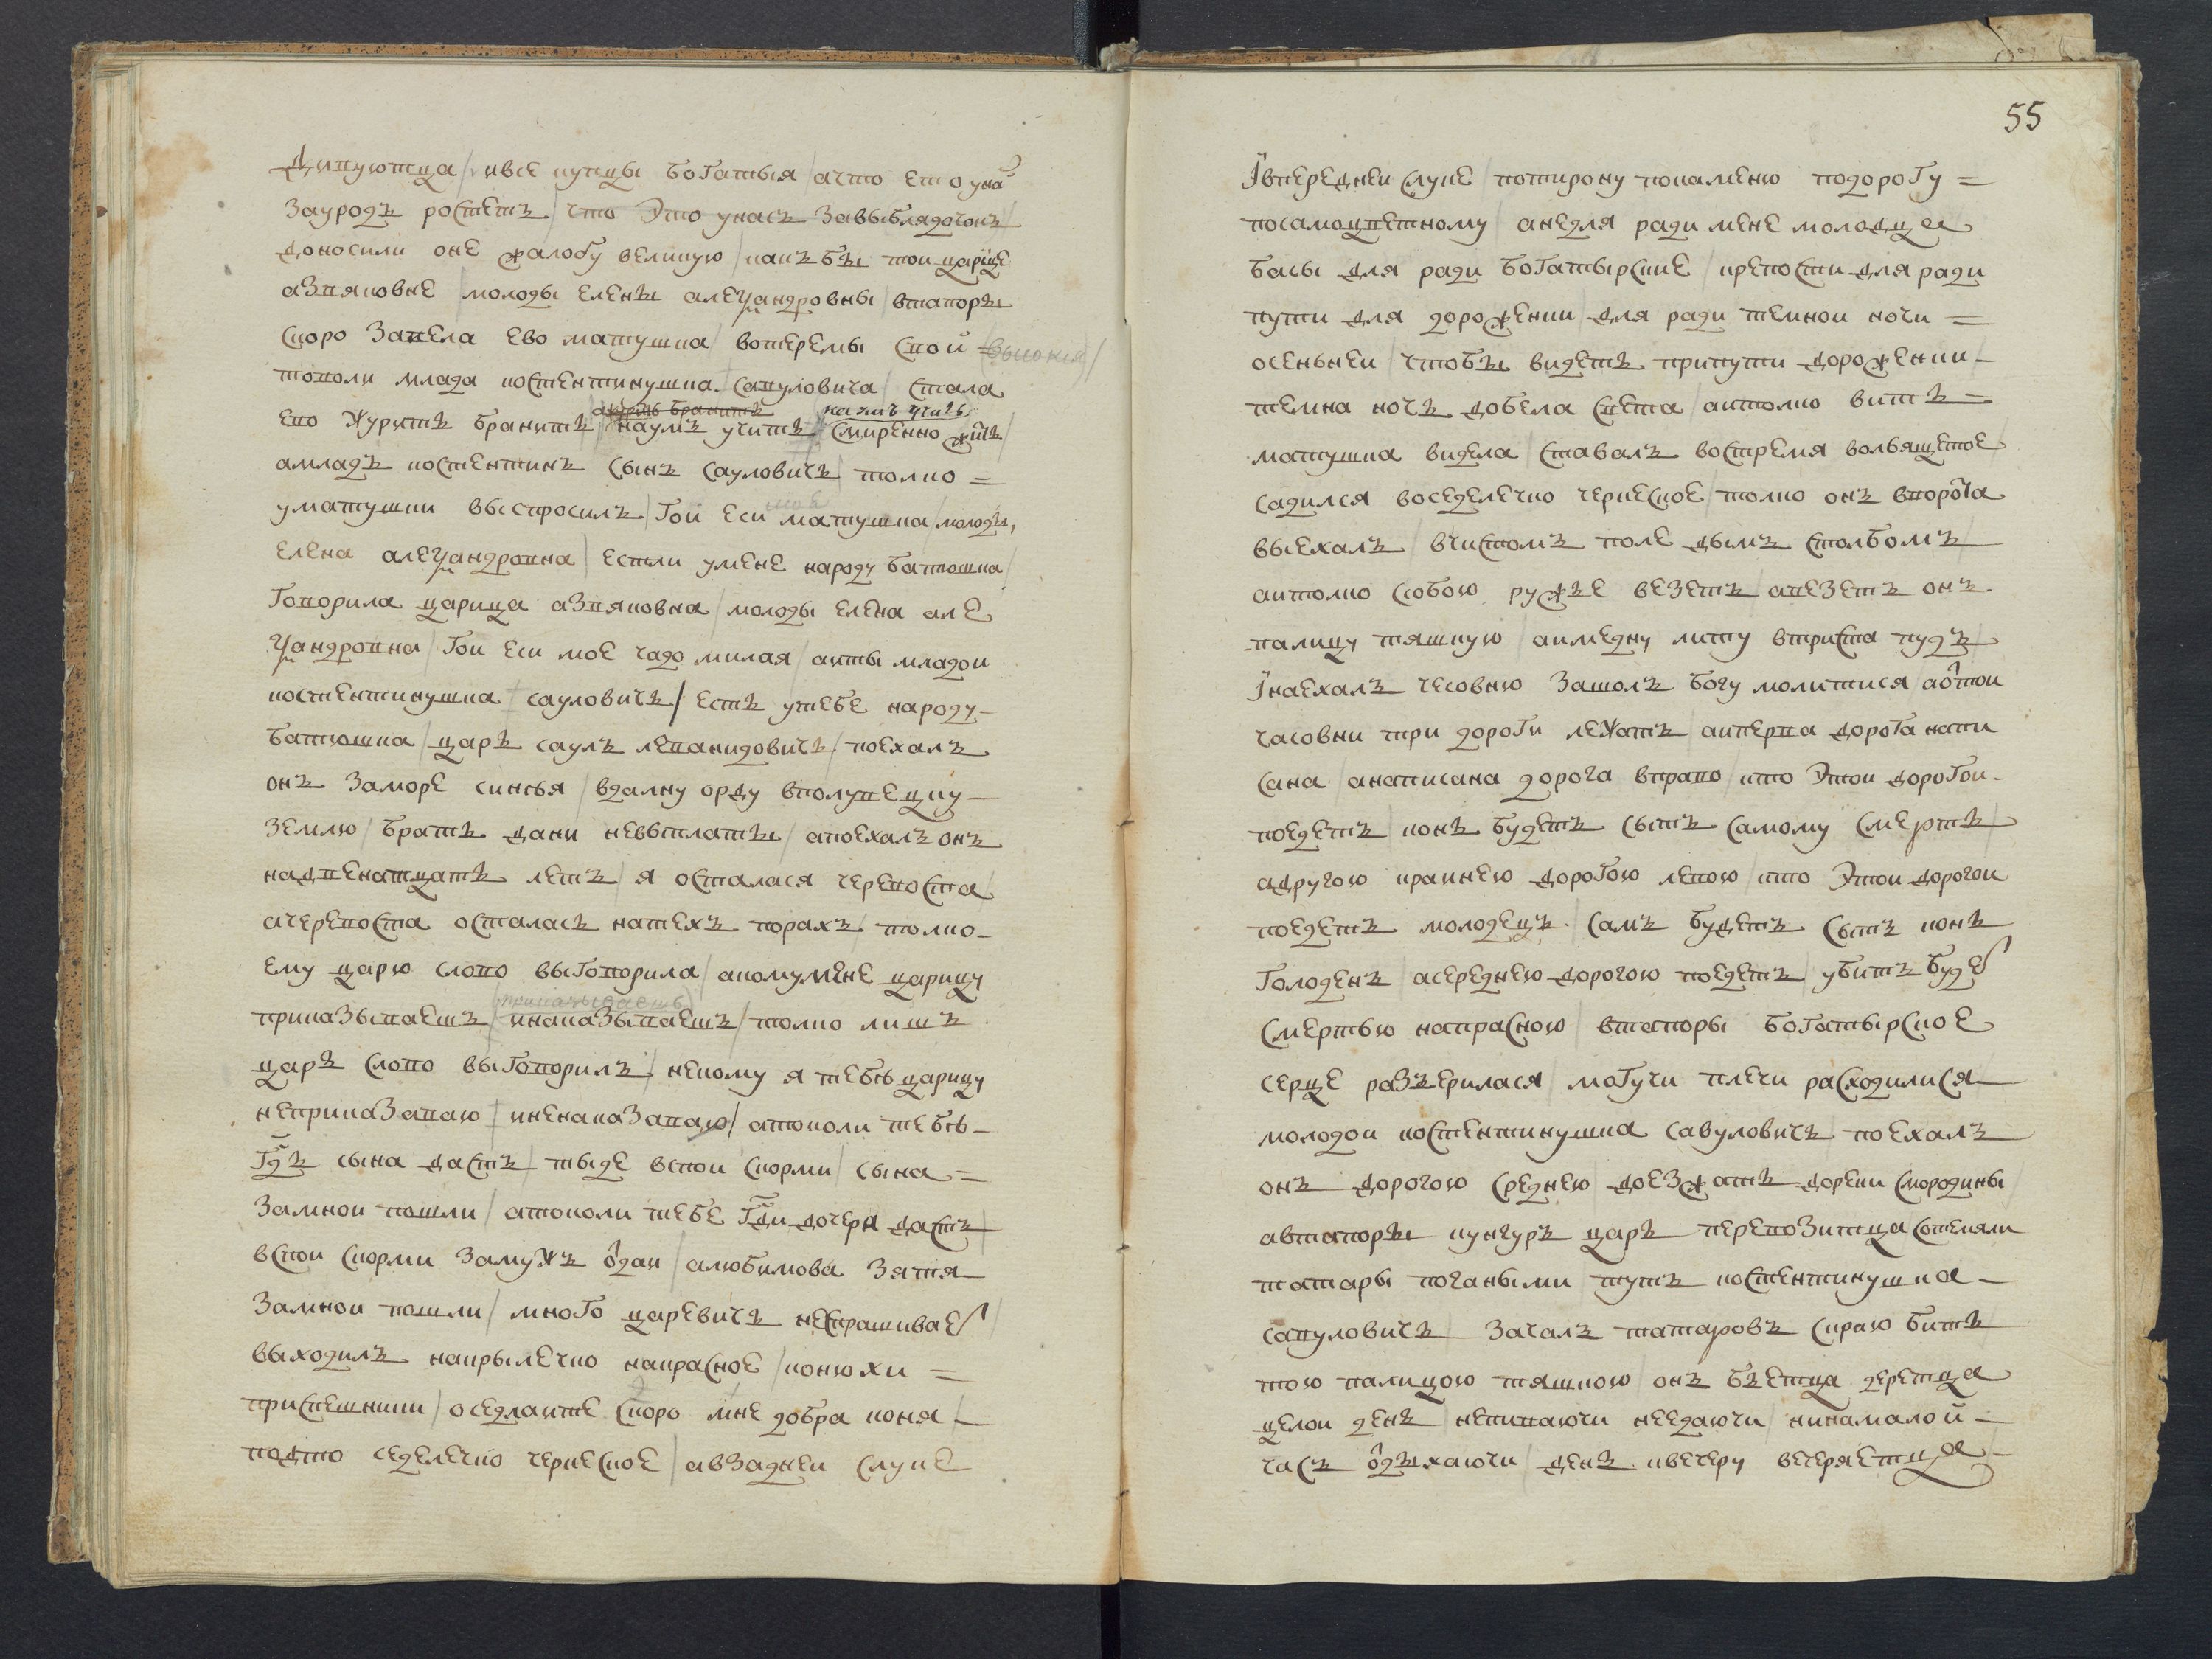 Дивуютца / и все купцы богатыя / а что ето у нас
за урод ростет / что это у нас за выблядочок /
доносили оне жалобу великую / как бы той царице
азвяковне / молоды елены александровны / втапоры
скоро завела ево матушка / во теремы свои высокия /
тово ли млада костентинушка сауловича / стала
ево журить бранить / журить бранить на ум учить
на ум учить / смиренно жить /
а млад костентинъ сынъ сауловичь только =
у матушки выспросилъ / гой еси матушка / молоды,
елена александровна / есть ли у мене на роду батюшка /
говорила царица азвяковна / молоды елена але
ѯандровна / гои еси мое чадо милая / а и ты младой
костентинушка сауловичь / есть у тебе на роду -
батюшка / царь саулъ леванидовичь / поехалъ
онъ за море синея / в дальну орду в полувецку -
землю / брать дани невыплаты / а поехалъ онъ
на двенатцать летъ / я осталася черевоста
а черевоста осталась на техъ порахъ / только -
ему царю слово выговорила / а кому мене царицу
приказываешъ / приказываешь
и наказываешъ / только лишъ
царь слово выговорилъ / некому я тебь царицу
неприказаваю / и ненаказаваю / а токо ли тебь -
гдь сына дасть / ты де вспои скорми / сына =
за мной пошли / а токо ли тебе гди дочеря дасть /
вспои скорми замужъ отдаи / а любимова зятя -
за мной пошли / много царевичь не спрашивает /
выходилъ на крылечко на красное / конюхи =
приспешники / оседлаите скоро мне добра коня /
под то седелечко черкеское / а в заднеи слуке
55
Ї в переднеи слуке / по тирону по каменю по дорогу =
по самоцветному / а не для ради мене молодца
басы для ради богатырские / крепости для ради
пути для дороженки / для ради темной ночи =
осеньнеи / чтобы видеть при пути дороженки -
темна ночь добела света / а и только вить =
матушка видела / ставалъ во стремя вольящетое
садился во седелечко черкеское / только онъ в ворота
выехалъ / в чистомъ поле дымъ столбомъ
а и только с собою ружье везетъ а везетъ онъ
палицу тяшкую / а и медну литу в триста пудъ /
Ї наехалъ чесовню зашолъ богу молитися / а от той
часовни три дороги лежатъ / а и перва дорога напи
сана / а написана дорога вправо / кто этой дорогой -
поедетъ / конь будетъ сытъ самому смерть /
а другою крайнею дорогою левою / кто этой дорогой
поедетъ молодецъ самъ будетъ сытъ конь
голоденъ / а середнею дорогою поедетъ / убитъ будет
смертью напрасною / втапоры богатырское
серце разъерилася / могучи плечи расходилися
молодой костентинушка савуловичь поехалъ
онъ дорогою среднею доезжать до реки смородины
а втапоры кунгуръ царь перевозитца со темяли
татары погаными тутъ костентинушка -
сауловичь зачалъ татаровъ с краю бить
тою палицою тяшкою / онъ бьетца деретца
целой день непиваючи неедаючи / ни на малой -
часъ отдыхаючи / день к вечеру вечеряетца -